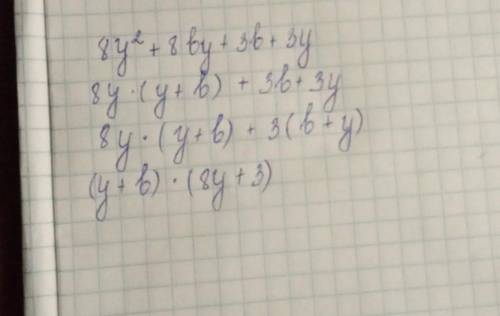 8y² + 8by + 3b + 3y
8y · (y + b) + 3b + 3y
8y · (y + b) + 3(b + y)
(y + b) · (8y + 3)